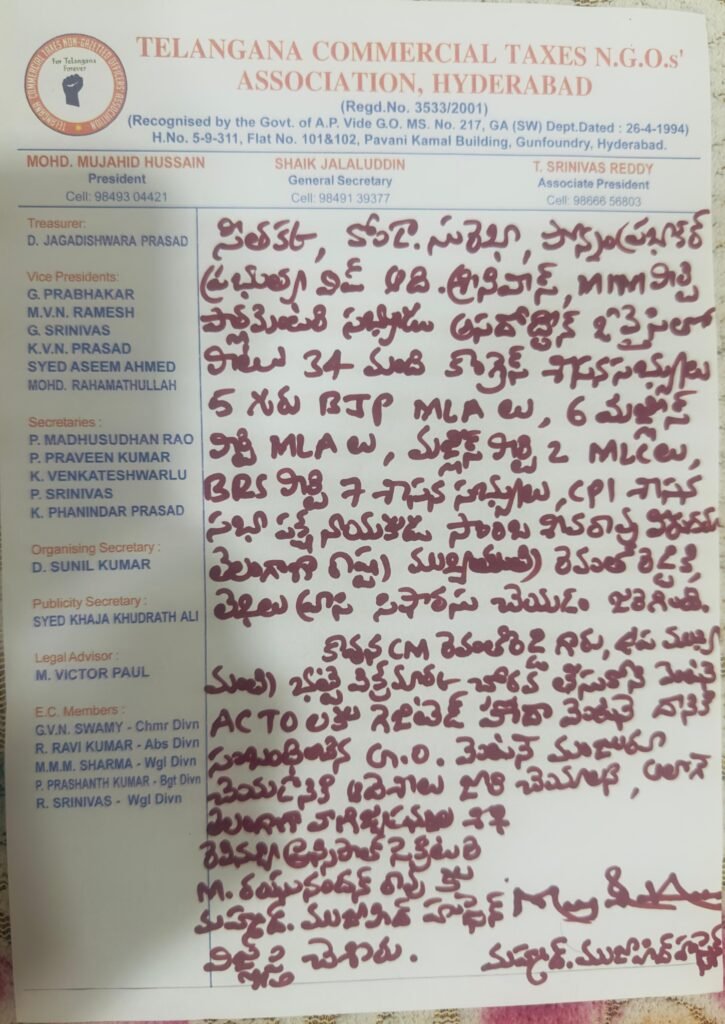 For Telangana
Forever
TELANGANA COMMERCIAL TAXES NON-GAZETTED OFFICERS ASSOCIATION
TELANGANA COMMERCIAL TAXES N.G.O.s'
ASSOCIATION, HYDERABAD
(Regd.No. 3533/2001)
(Recognised by the Govt. of A.P. Vide G.O. MS. No. 217, GA (SW) Dept.Dated : 26-4-1994)
H.No. 5-9-311, Flat No. 101&102, Pavani Kamal Building, Gunfoundry, Hyderabad.
MOHD. MUJAHID HUSSAIN
President
Cell: 98493 04421
SHAIK JALALUDDIN
General Secretary
Cell: 98491 39377
T. SRINIVAS REDDY
Associate President
Cell: 98666 56803
Treasurer:
D. JAGADISHWARA PRASAD
Vice Presidents:
G. PRABHAKAR
M.V.N. RAMESH
G. SRINIVAS
K.V.N. PRASAD
SYED ASEEM AHMED
MOHD. RAHAMATHULLAH
Secretaries :
P. MADHUSUDHAN RAO
P. PRAVEEN KUMAR
K. VENKATESHWARLU
P. SRINIVAS
K. PHANINDAR PRASAD
Organising Secretary :
D. SUNIL KUMAR
Publicity Secretary :
SYED KHAJA KHUDRATH ALI
Legal Advisor :
M. VICTOR PAUL
E.C. Members :
G.V.N. SWAMY - Chmr Divn
R. RAVI KUMAR - Abs Divn
M.M.M. SHARMA - Wgl Divn
P. PRASHANTH KUMAR - Bgt Divn
R. SRINIVAS - Wgl Divn
సీతక్క, కొండా. సురేఖా, పొన్నం ప్రభాకర్
ప్రభుత్వ విప్ ఆది. శ్రీనివాస్, MIM పార్టీ
పార్లమెంటరీ సభ్యుడు అసదోద్దీన్ ఓవైసీలో
పాటు 34 మంది కాంగ్రెస్ శాసనసభ్యులు
5 గురు BJP MLA లు, 6 మజ్లిస్
పార్టీ MLA లు, మజ్లిస్ పార్టీ 2 MLC లు,
BRS పార్టీ 7 శాసన సభ్యులు, CPI శాసన
సభా పక్ష నాయకుడు సాంబ శివరావు
తెలంగాణ రాష్ట్ర ముఖ్యమంత్రి రేవంత్ రెడ్డికి,
లెటర్లు వ్రాసి సిఫారసు చేయడం జరిగింది.
కావున CM రేవంత్ రెడ్డి గారు, ఉప ముఖ్య
మంత్రి భట్టి విక్రమార్క చొరవ తీసుకొని వెంటనే
ACTO లకు గెజిటెడ్ హోదా వెంటనే దానికి
సంబంధించిన G.O. వెంటనే మంజూరు
చేయడానికి ఆదేశాలు జారీ చేయాలని, అలాగే
తెలంగాణ వాణిజ్యపన్నుల శాఖ
రెవిన్యూ ప్రిన్సిపాల్ సెక్రెటరీ
M. రఘునందన్ రావు కు
మహ్మద్. ముజాహిద్ హుస్సేన్
విజ్ఞప్తి చేశారు.
మహ్మద్. ముజాహిద్ హుస్సేన్